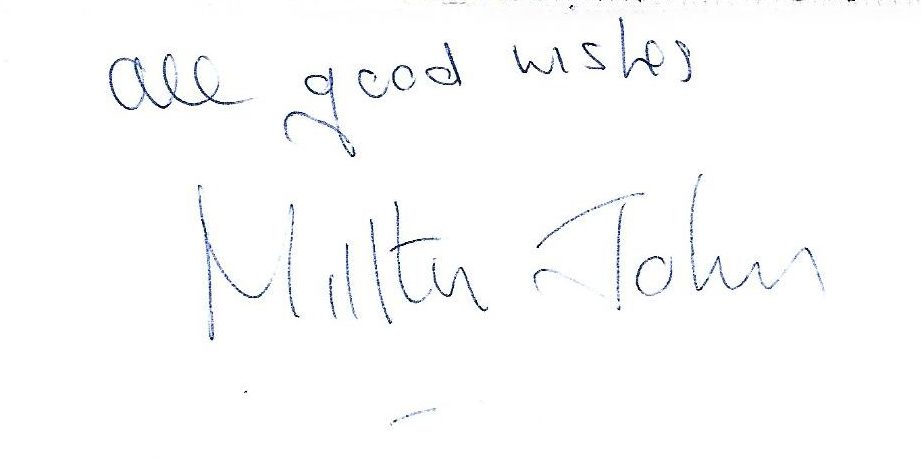 all good wishes
Milton John